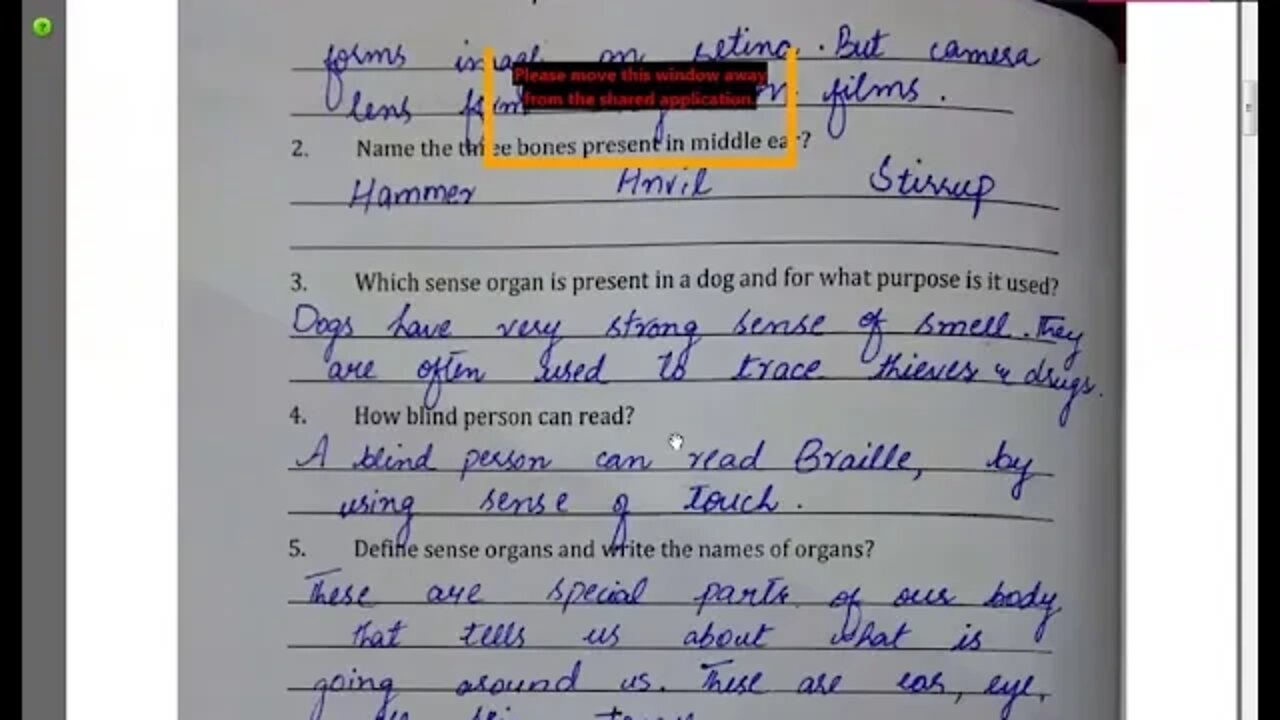 forms image on retina. But camera
Please move this window away
from the shared application.
lens films.
2. Name the three bones present in middle ear?
Hammer Anvil Stirrup
3. Which sense organ is present in a dog and for what purpose is it used?
Dogs have very strong sense of smell. They
are often used to trace thieves & drugs.
4. How blind person can read?
A blind person can read Braille, by
using sense of touch.
5. Define sense organs and write the names of organs?
These are special parts of our body
that tells us about what is
going around us. These are ear, eye,